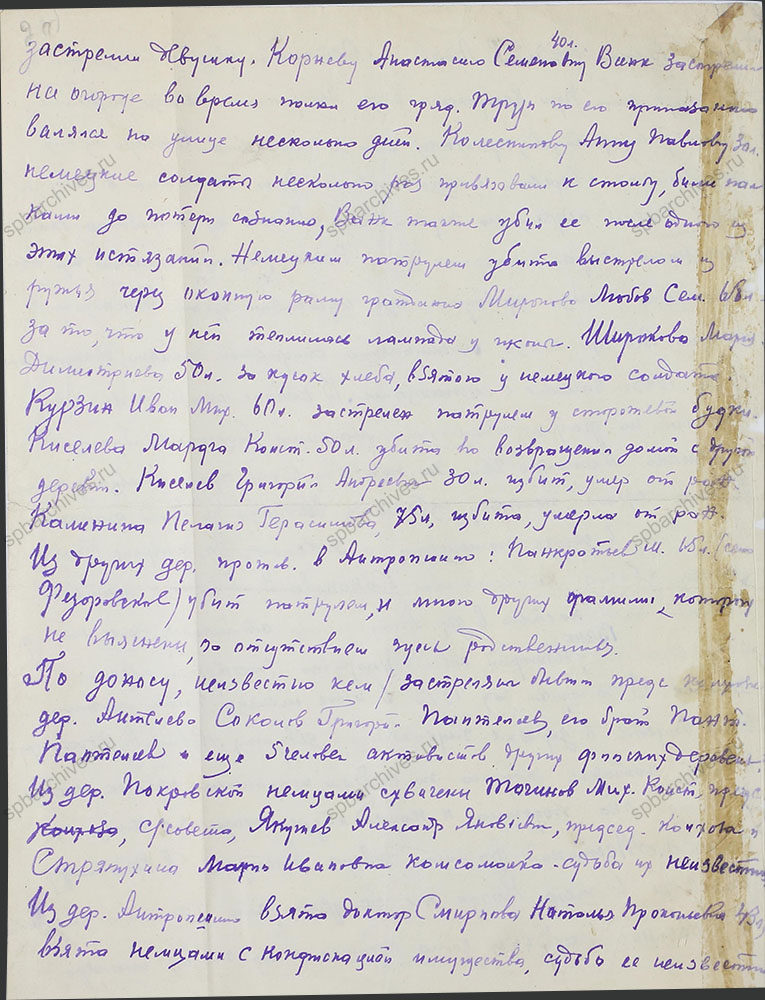 застрелил девушку. Корневу Анастасию Семеновну 40л. Ванк застрелил
на огороде во время полки его гряд. Труп по его приказанию
валялся на улице несколько дней. Колесникову Анну Павлову 30л.
немецкие солдаты несколько раз привязовали к столбу, били пал
ками до потери сознания, Ванк также убил ее после одного из
этих истязаний. Немецким патрулем убита выстрелом из
ружья через оконную раму гражданка Миронова Любов Сем. 68л.
за то, что у ней теплилась лампада у иконы. Широкова Мария
Димитриева 50л. за кусок хлеба, взятого у немецкого солдата.
Курзин Иван Мих. 60л. застрелен патрулем у сторожевой будки.
Киселева Марфа Конст. 50л. убита по возвращении домой с другой
деревни. Киселев Григорий Андреевич 30л. избит, умер от ран.
Калинина Пелагия Герасимовна, 75л, избита, умерла от ран.
Из других дер. прожив. в Антропшино: Панкратьев М. 65л. (село
Федоровское) убит патрулем, и много других фамилии, которых
не выяснены, за отсутствием здесь родственников.
По доносу, неизвестно кем / застрелян бывший предс
дер. Антелево Соколов Григорий Пантелеев, его брат Пант.
Пантелеев и еще 5 человек активистов других финских деревень.
Из дер. Покровской немцами схвачены Тагинов Мих. Конст., предс.
с/совета, Якушев Александр Яковлевич, председ. колхоза и
Стряпухина Мария Ивановна комсомолка - судьба их неизвестна
Из дер. Антропшино взята доктор Смирнова Наталья Прокопьевна 43л,
взята немцами с конфискацией имущества, судьба ее неизвестна
spbarchives.ru
spbarchives.ru
spbarchives.ru
spbarchives.ru
spbarchives.ru
spbarchives.ru
spbarchives.ru
spbarchives.ru
spbarchives.ru